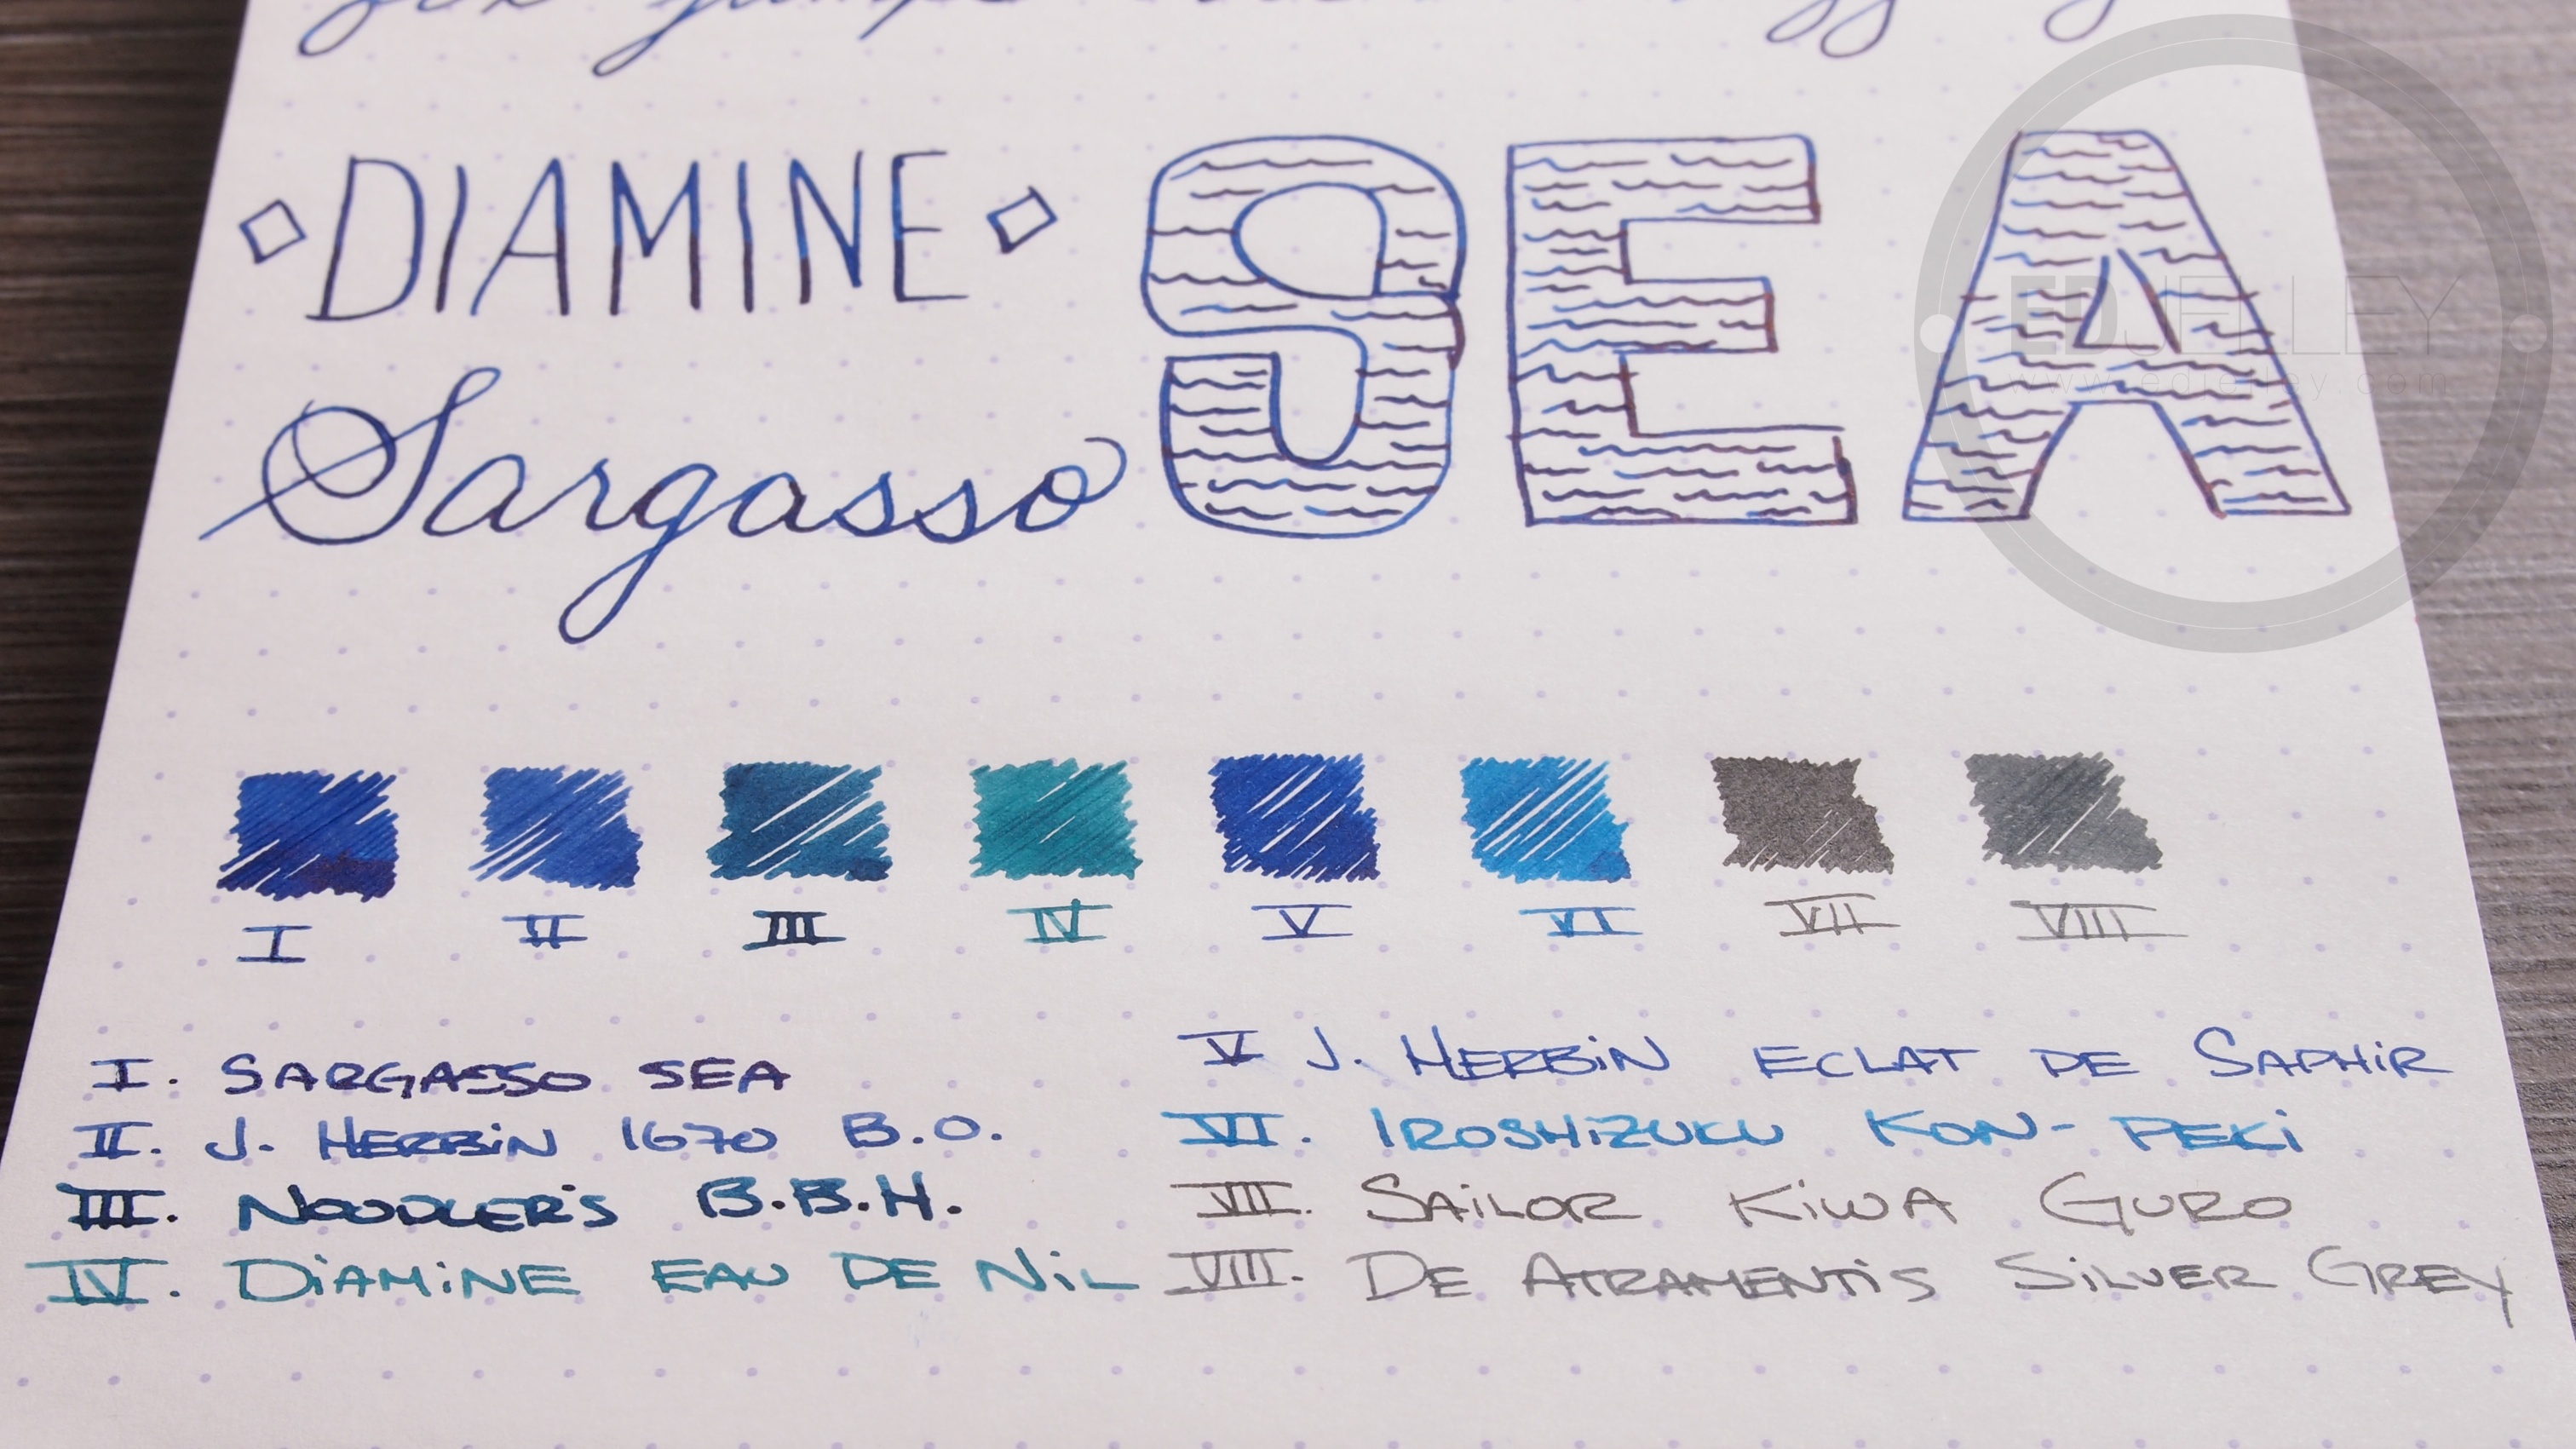 ◇ DIAMINE ◇ SEA
Sargasso
I II III IV V VI VII VIII
I. SARGASSO SEA
II. J. HERBIN 1670 B.O.
III. NOODLER'S B.B.H.
IV. DIAMINE EAU DE NIL
V J. HERBIN ECLAT DE SAPHIR
VI. IROSHIZUKU KON-PEKI
VII. SAILOR KIWA GURO
VIII. DE ATRAMENTIS SILVER GREY
EDJELLEY
www.edjelley.com